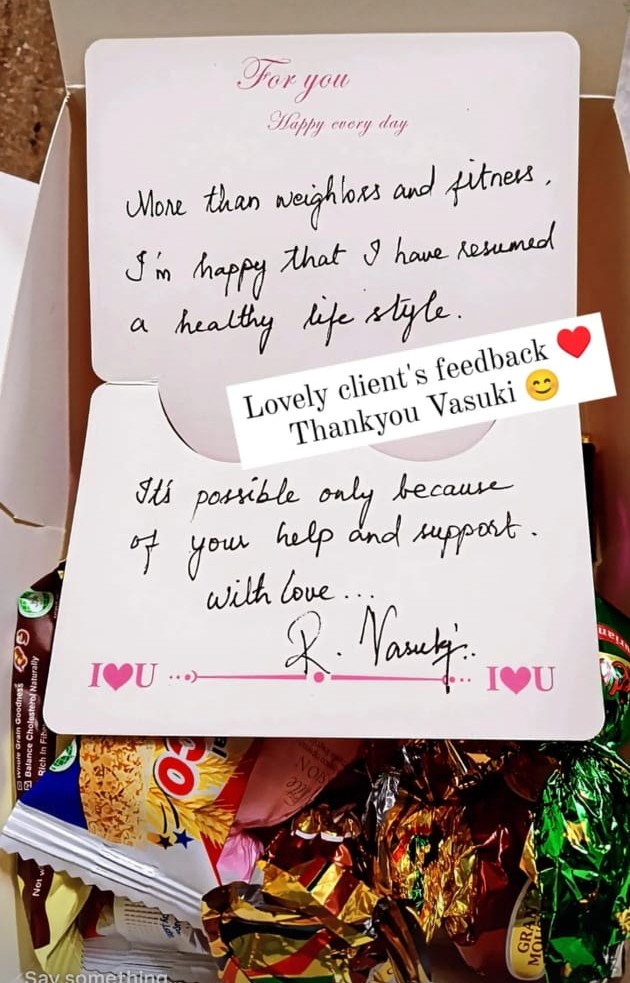 For you
Happy every day
More than weighloss and fitness,
I'm happy that I have resumed
a healthy life style.
Lovely client's feedback ❤️
Thankyou Vasuki 😊
It's possible only because
of your help and support.
with love...
R. Vasuki..
I♥U
I♥U
Whole Grain Goodness
Balance Cholesterol Naturally
Rich In
GRA
MO
Say something